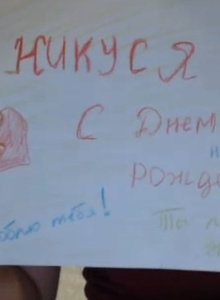 НИКУСЯ
С Днем
Рожде
юблю тебя!
Ты